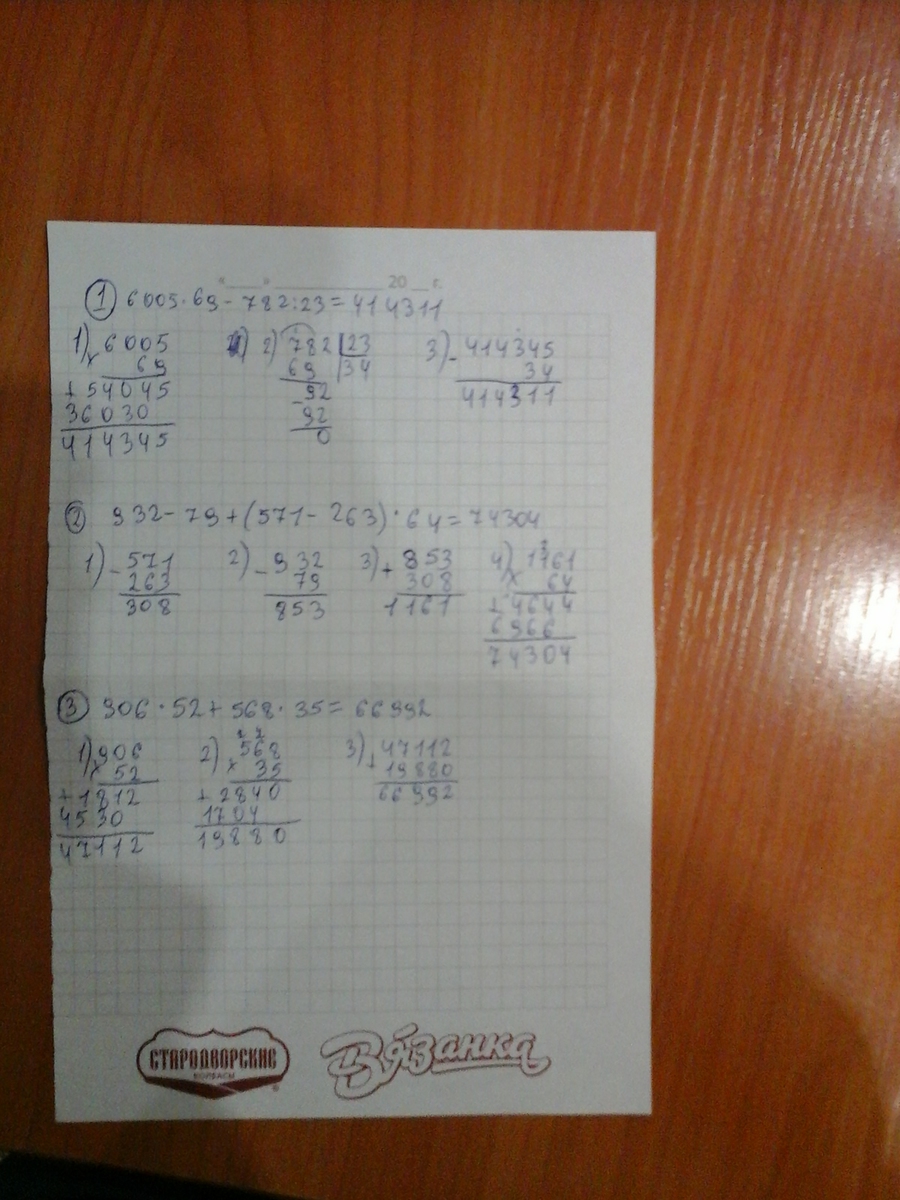 "___" ____________ 20__ г.
① 6005·69 - 782:23 = 414311
1) × 6005 2) 782 | 23 3) - 414345
69 69 34 34
+ 54045 - 92 414311
36030 92
414345 0
② 932 - 79 + (571 - 263) · 64 = 74304
1) - 571 2) - 932 3) + 853 4) × 1161
263 79 308 64
308 853 1161 + 4644
6966
74304
③ 906 · 52 + 568 · 35 = 66992
1) × 906 2) × 568 3) + 47112
52 35 19880
+ 1812 + 2840 66992
4530 1704
47112 19880
СТАРОДВОРСКИЕ Вязанка
КОЛБАСЫ